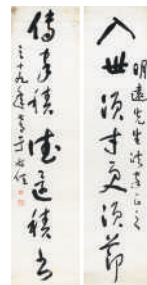 明遠先生法家正之
入世須才更須節
傳家積德還積書
三十九年書于右任